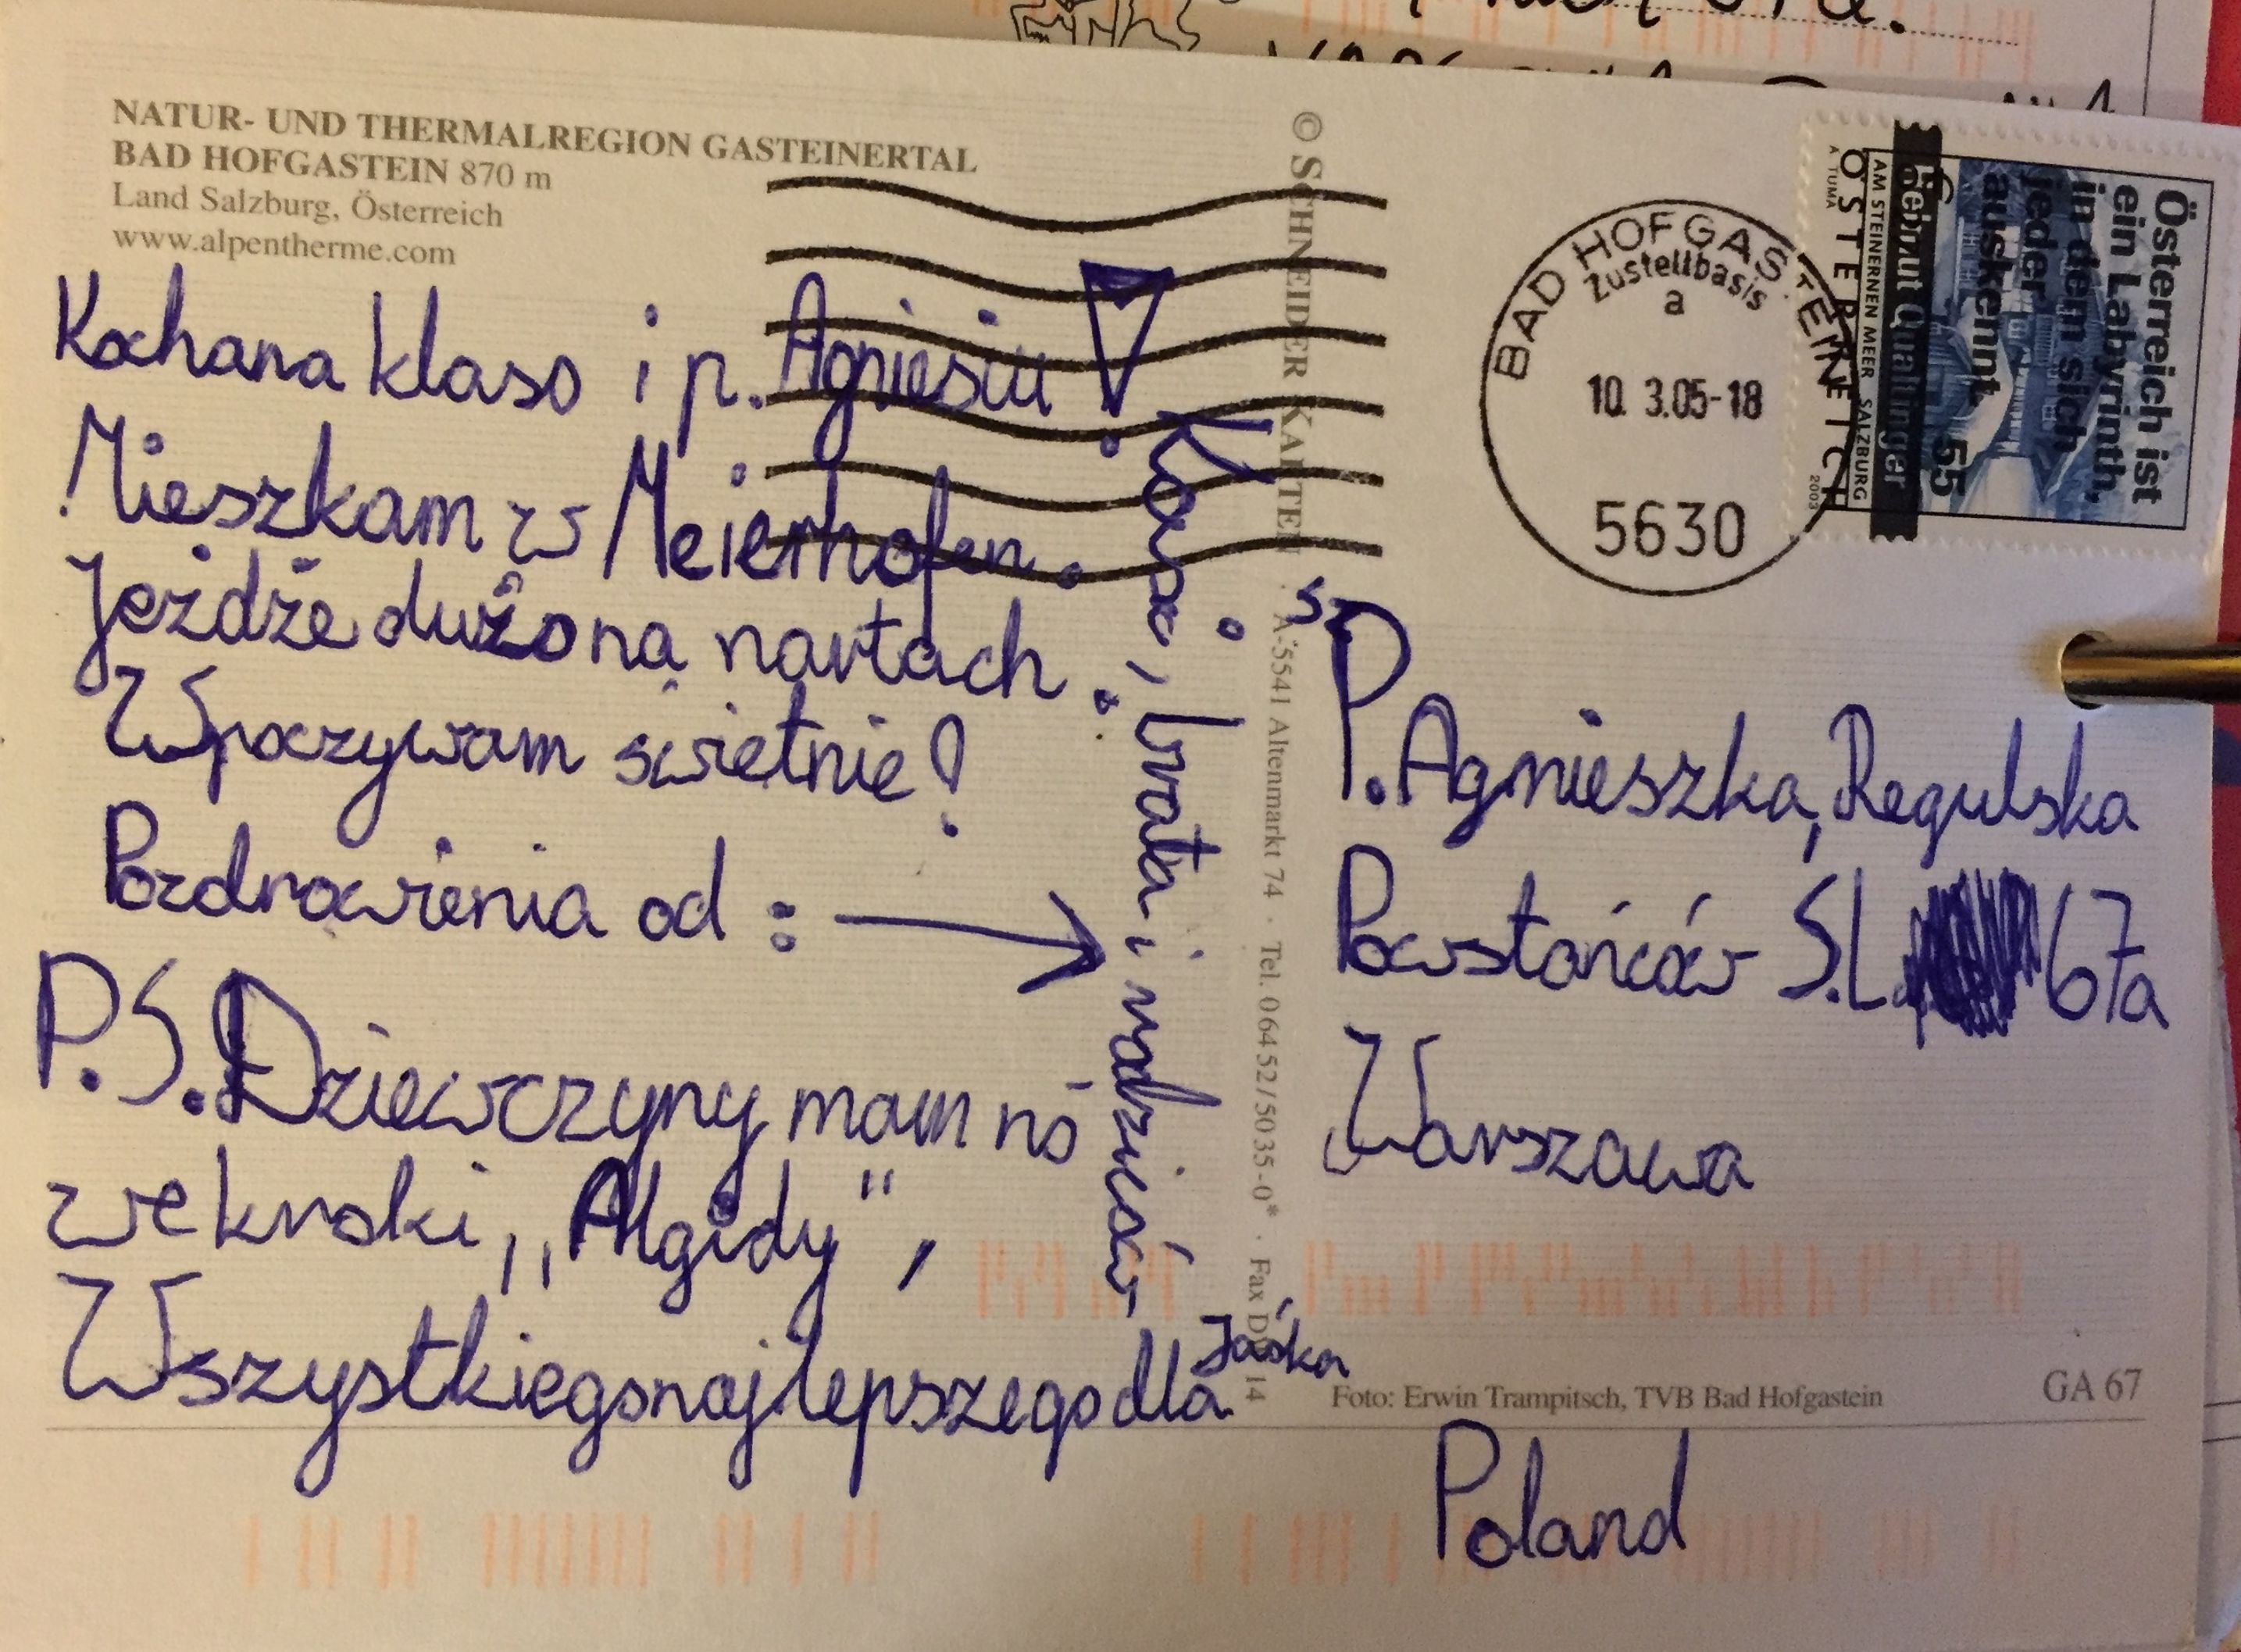 NATUR- UND THERMALREGION GASTEINERTAL
BAD HOFGASTEIN 870 m
Land Salzburg, Österreich
www.alpentherme.com
Kochana klaso i p. Agniesiu!
Mieszkam w Meierhofen.
Jeżdże dużo na nartach.
Wpoczywam świetnie!
Pozdrowienia od:
P.S. Dziewczyny mam no
we kroki, „Algidy”,
Wszystkiego najlepszego dla
Jaśka
brata i rodziców
© SCHNEIDER KARTEN · A-5541 Altenmarkt 74 · Tel. 06452/5035-0* · Fax DW 14
BAD HOFGASTEIN
Zustellbasis
a
10. 3.05-18
5630
Österreich ist
ein Labyrinth,
in dem sich
jeder
auskennt.
Helmut Qualtinger
55
AM STEINERNEN MEER SALZBURG
ÖSTERREICH
A. TUMA
2003
Sz
P. Agnieszka, Regulska
Powstańców Ś.L. 67a
Warszawa
Foto: Erwin Trampitsch, TVB Bad Hofgastein
GA 67
Poland